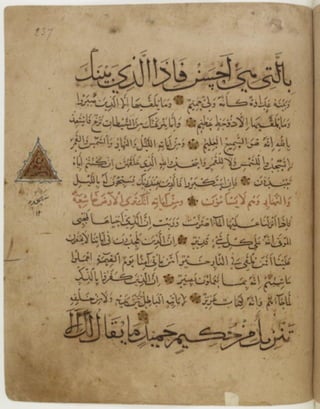 237
بِالَّتِي هِيَ أَحْسَنُ فَإِذَا الَّذِي بَيْنَكَ
وَبَيْنَهُ عَدَاوَةٌ كَأَنَّهُ وَلِيٌّ حَمِيمٌ وَمَا يُلَقَّيهَا إِلَّا الَّذِينَ صَبَرُوا
وَمَا يُلَقَّيهَا إِلَّا ذُو حَظٍّ عَظِيمٍ وَإِمَّا يَنْزَغَنَّكَ مِنَ الشَّيْطَانِ نَزْغٌ فَاسْتَعِذْ
بِاللَّهِ إِنَّهُ هُوَ السَّمِيعُ الْعَلِيمُ وَمِنْ آيَاتِهِ اللَّيْلُ وَالنَّهَارُ وَالشَّمْسُ وَالْقَمَرُ
لَا تَسْجُدُوا لِلشَّمْسِ وَلَا لِلْقَمَرِ وَاسْجُدُوا لِلَّهِ الَّذِي خَلَقَهُنَّ إِنْ كُنْتُمْ إِيَّاهُ
تَعْبُدُونَ فَإِنِ اسْتَكْبَرُوا فَالَّذِينَ عِنْدَ رَبِّكَ يُسَبِّحُونَ لَهُ بِاللَّيْلِ
وَالنَّهَارِ وَهُمْ لَا يَسْأَمُونَ وَمِنْ آيَاتِهِ أَنَّكَ تَرَى الْأَرْضَ خَاشِعَةً
فَإِذَا أَنْزَلْنَا عَلَيْهَا الْمَاءَ اهْتَزَّتْ وَرَبَتْ إِنَّ الَّذِي أَحْيَاهَا لَمُحْيِي
الْمَوْتَى إِنَّهُ عَلَى كُلِّ شَيْءٍ قَدِيرٌ إِنَّ الَّذِينَ يُلْحِدُونَ فِي آيَاتِنَا لَا يَخْفَوْنَ
عَلَيْنَا أَفَمَنْ يُلْقَى فِي النَّارِ خَيْرٌ أَمْ مَنْ يَأْتِي آمِنًا يَوْمَ الْقِيَمَةِ اعْمَلُوا
مَا شِئْتُمْ إِنَّهُ بِمَا تَعْمَلُونَ بَصِيرٌ إِنَّ الَّذِينَ كَفَرُوا بِالذِّكْرِ
لَمَّا جَاءَهُمْ وَإِنَّهُ لَكِتَابٌ عَزِيزٌ لَا يَأْتِيهِ الْبَاطِلُ مِنْ بَيْنِ يَدَيْهِ وَلَا مِنْ خَلْفِهِ
تَنْزِيلٌ مِنْ حَكِيمٍ حَمِيدٍ مَا يُقَالُ لَكَ